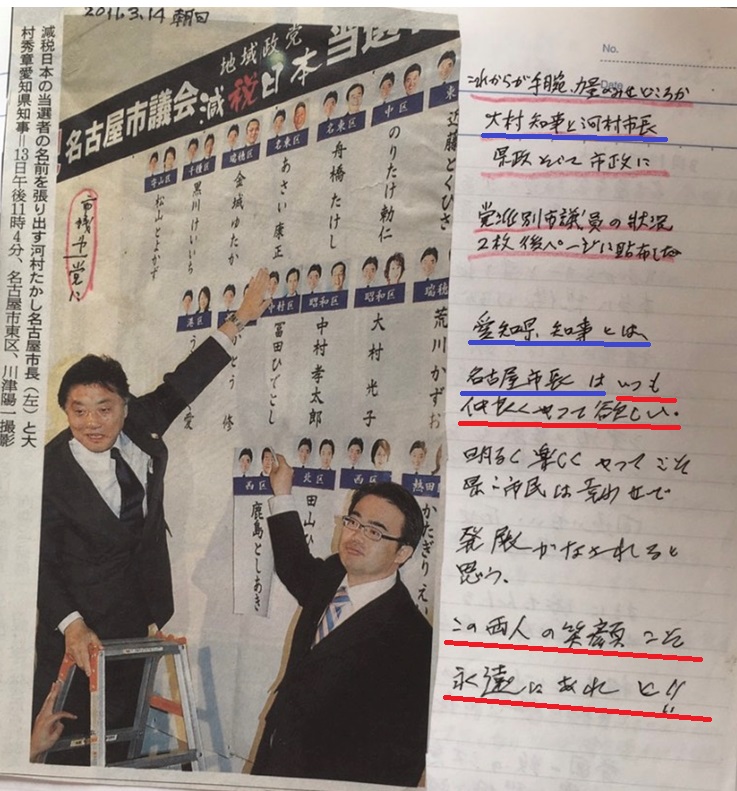 2011.3.14 朝日
地域政党
名古屋市議会減税日本当選
守山区
松山とよかず
千種区
黒川けいいち
瑞穂区
金城ゆたか
名東区
あさい康正
名東区
舟橋たけし
中区
のりたけ勅仁
東
近藤とくひさ
港区
う
愛
とう 修
中村区
冨田ひでとし
昭和区
中村孝太郎
昭和区
大村光子
瑞穂
荒川かずお
西区
鹿島としあき
北区
田山ひ
西区
熱田
かたぎり えい
減税日本の当選者の名前を張り出す河村たかし名古屋市長(左)と大
村秀章愛知県知事=13日午後11時4分、名古屋市東区、川津陽一撮影
No.
Date
これからが手腕、力量のみせどころか
大村知事と河村市長
県政そして市政に
党派別市議員の状況
2枚後ページに貼布した
愛知県、知事とは、
名古屋市長はいつも
仲良くやって欲しい。
明るく楽しくやってこそ
県・市民は
発展がなされると
思う。
この両人の笑顔こそ
永遠にあれと!!